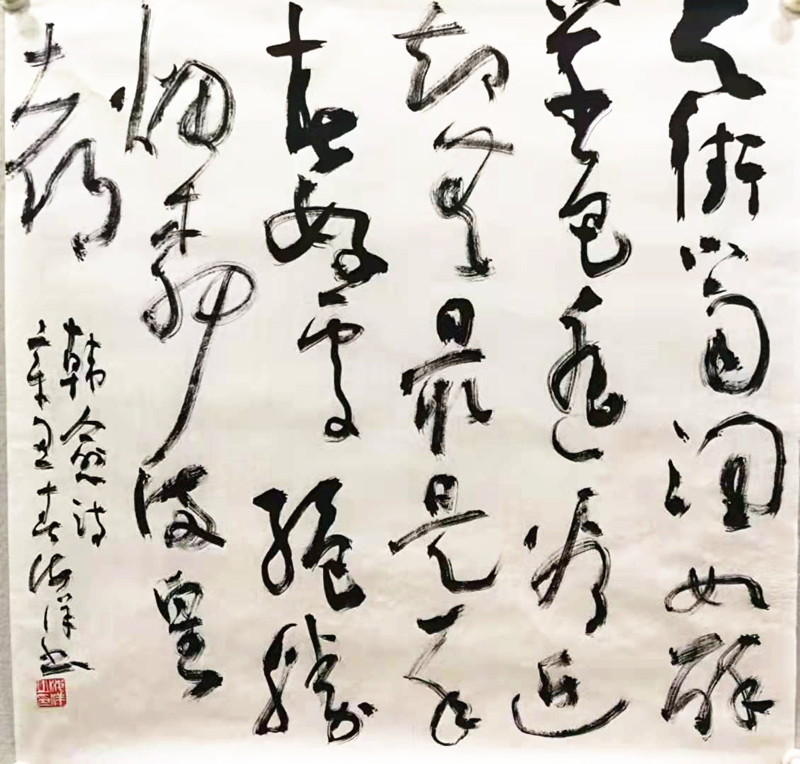 天街小雨润如酥
草色遥看近
却无最是一年
春好处绝胜
烟柳满皇
都
韩愈诗
辛丑春 书